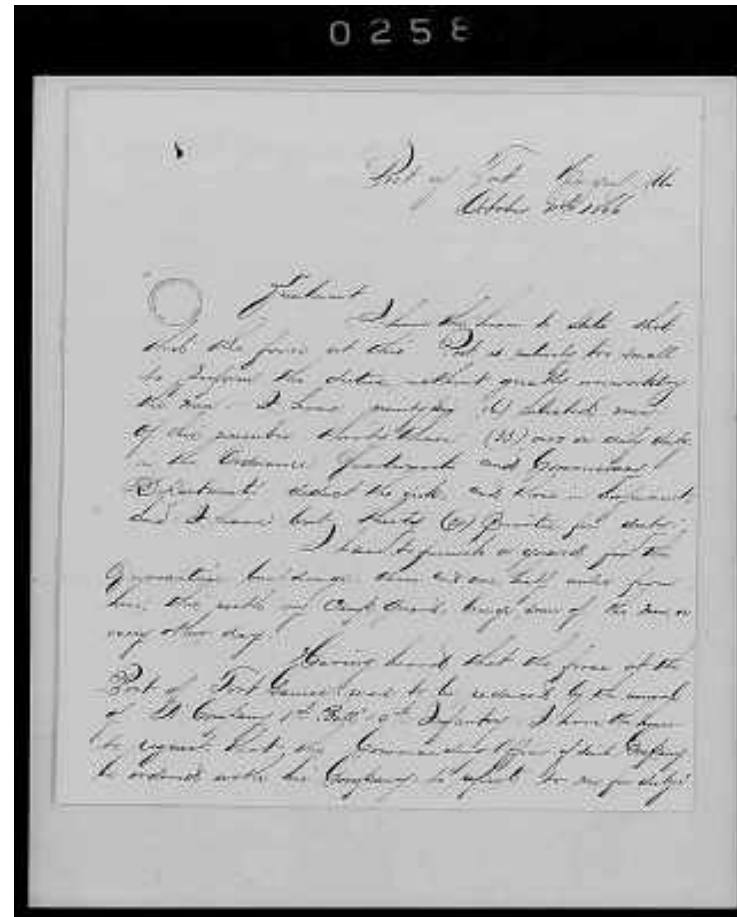 0258
Post of Fort
October 1866
I have the honor to state that
that the force at this Post is entirely too small
to perform the duties without greatly overworking
the men. I have enlisted men
of this number thirty three (33) are on daily duty
in the Ordnance and Commissary
Departments deduct the sick and those in confinement
and I have but thirty Privates for duty.
I have to furnish a guard for the
Quarantine buildings three and one half miles from
here, this with my Camp Guard brings some of the men on
every other day.
Having heard that the force at the
Post of Fort was to be reduced by the removal
of Company 1st Batt Infantry I have the honor
to request that the Commanding Officer of said Company
be ordered with his Company to report to me for duty.